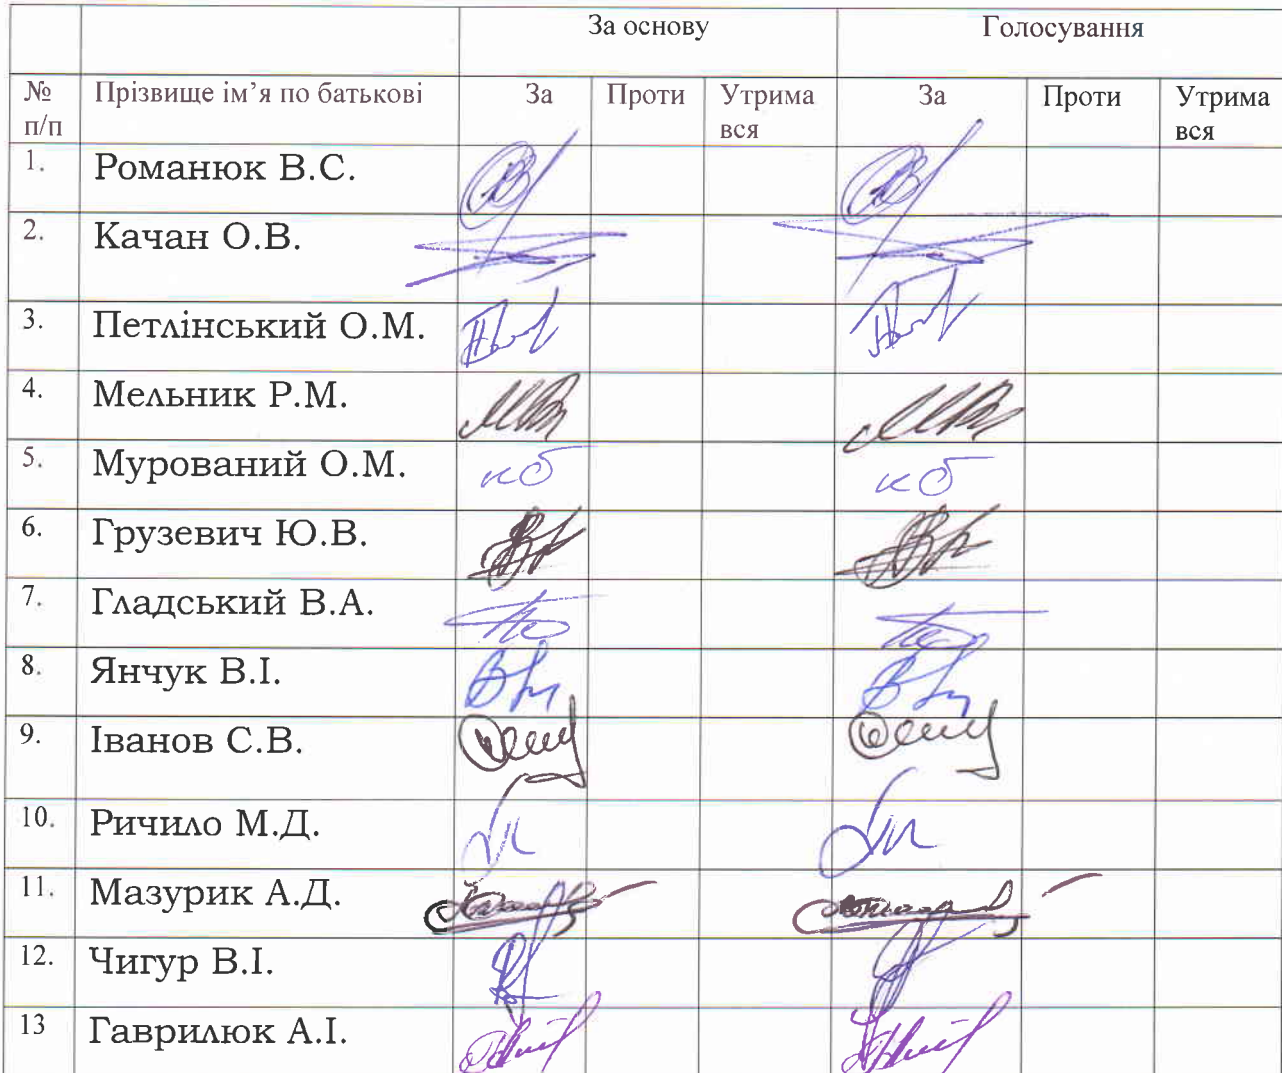 За основу Голосування
№ п/п Прізвище ім’я по батькові За Проти Утрима вся За Проти Утрима вся
1. Романюк В.С.
2. Качан О.В.
3. Петлінський О.М.
4. Мельник Р.М.
5. Мурований О.М. кб кб
6. Грузевич Ю.В.
7. Гладський В.А.
8. Янчук В.І.
9. Іванов С.В.
10. Ричило М.Д.
11. Мазурик А.Д.
12. Чигур В.І.
13 Гаврилюк А.І.